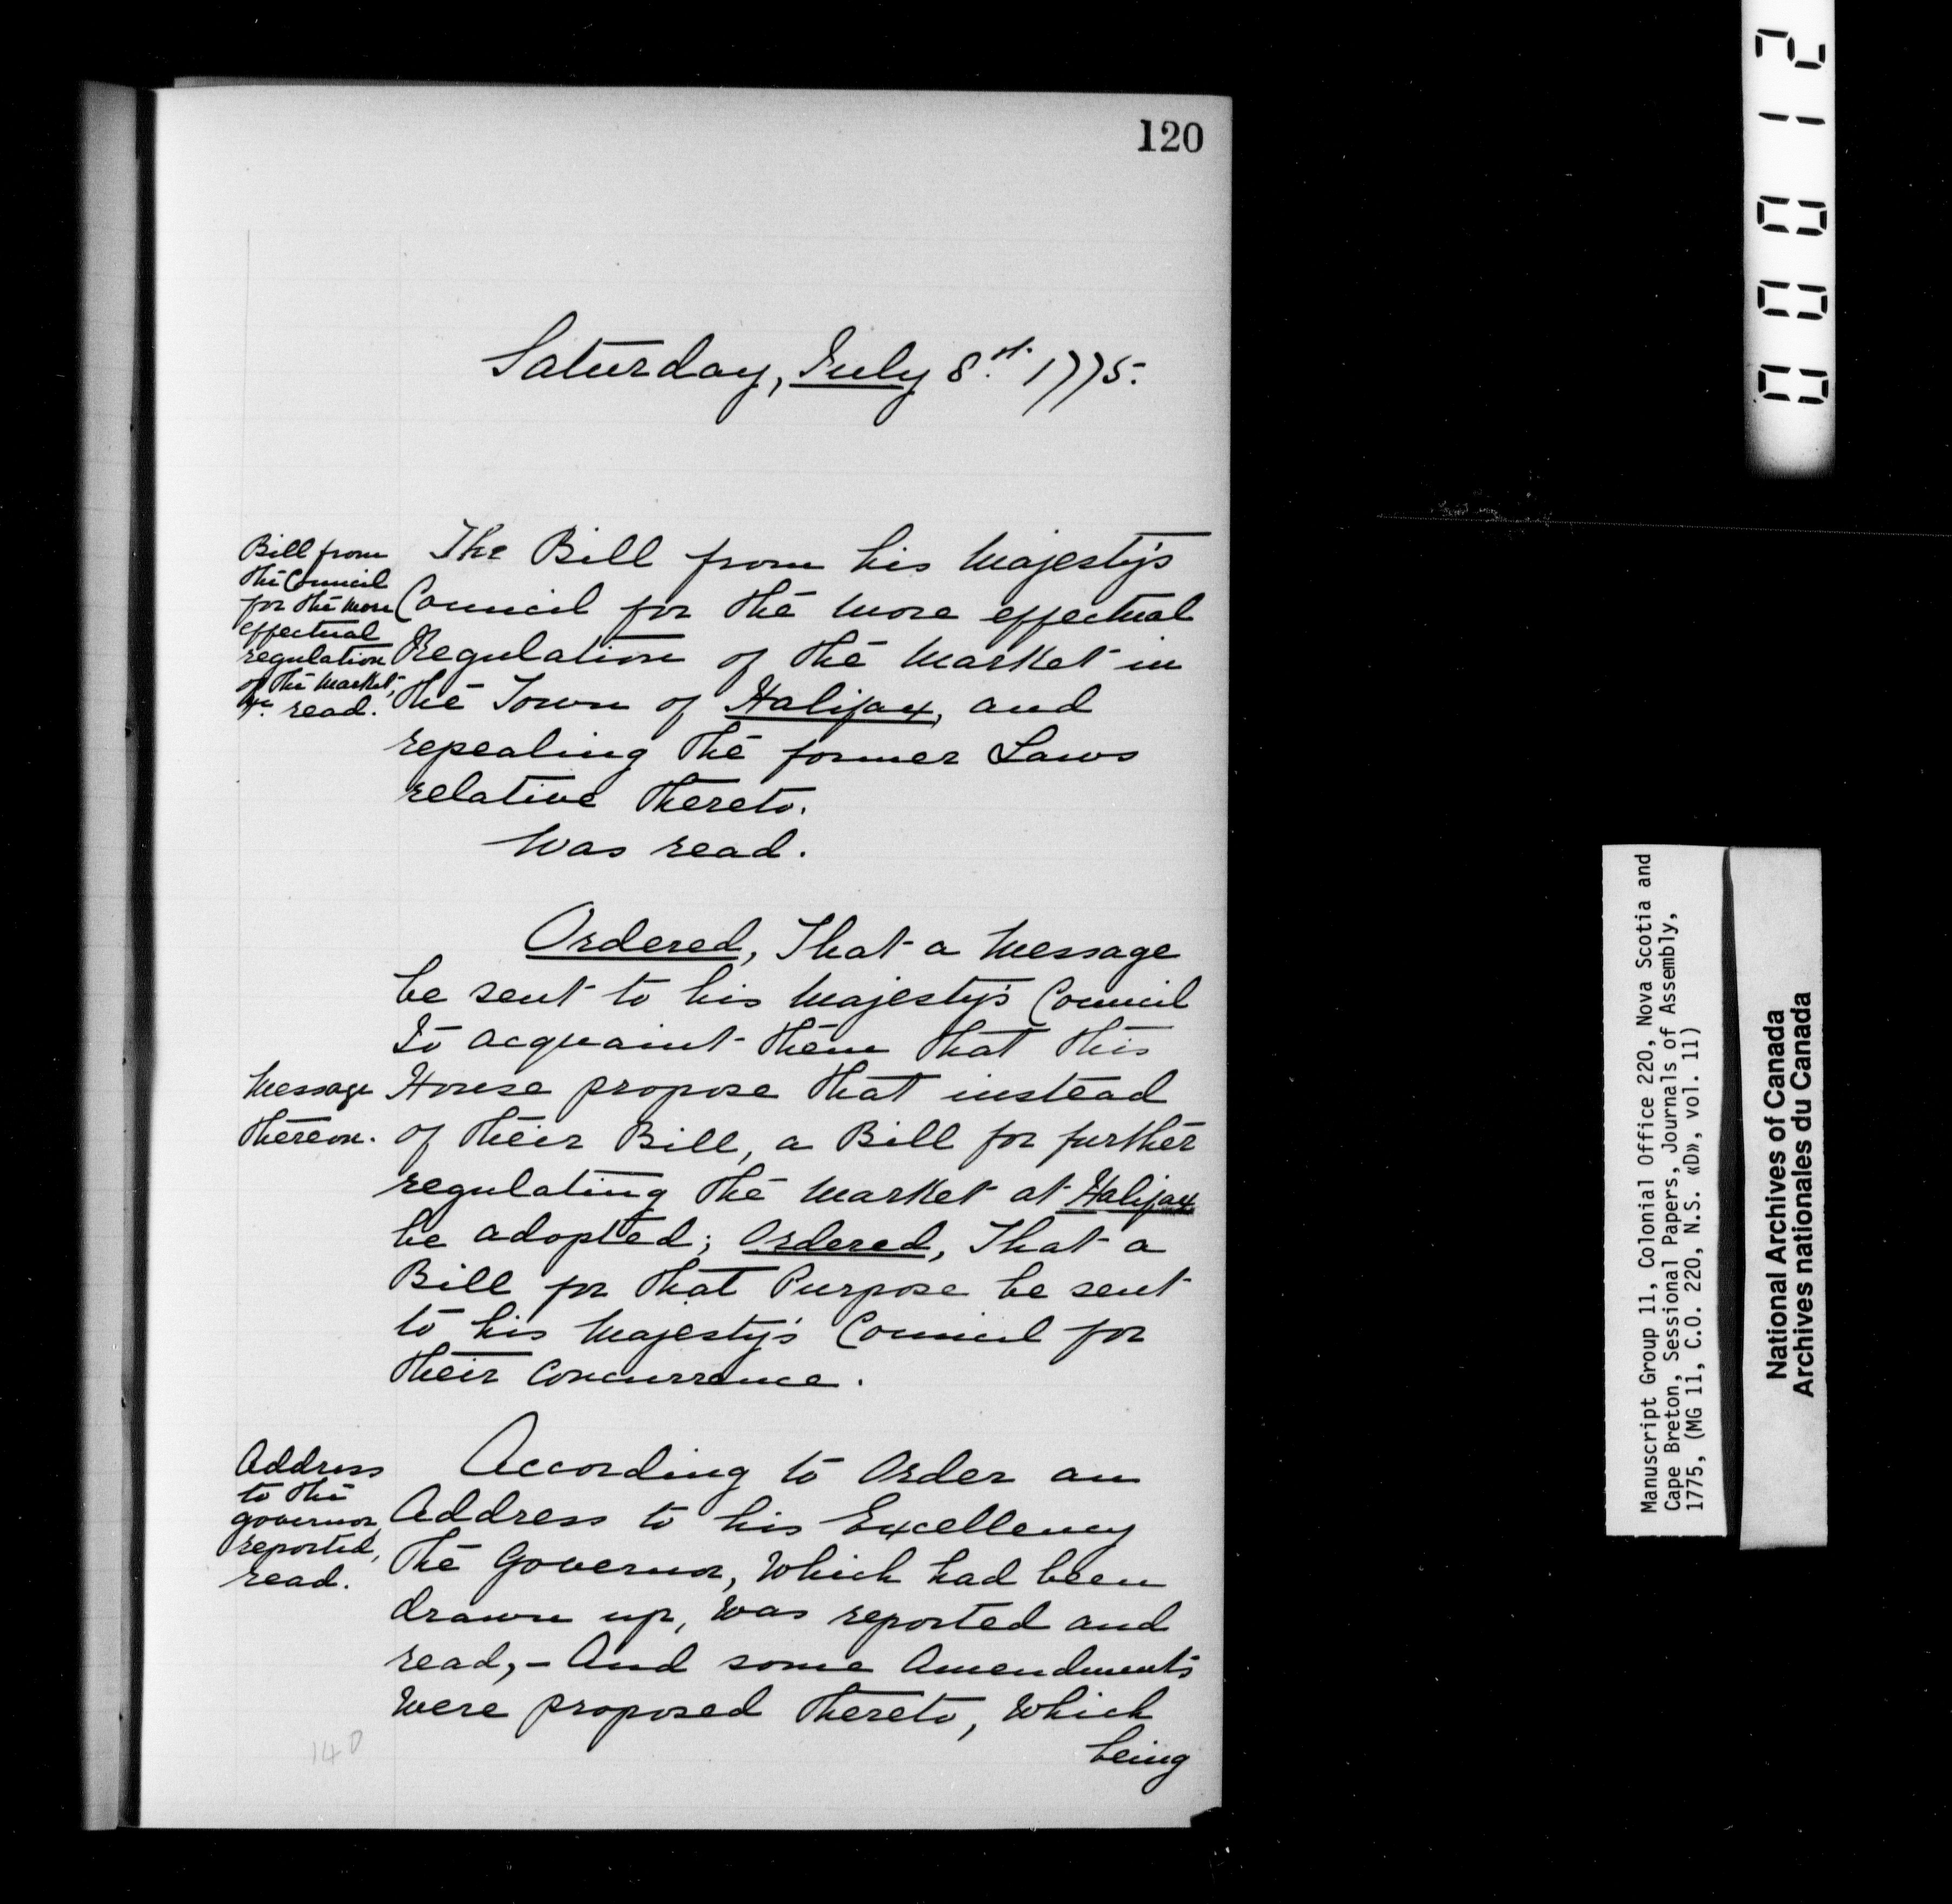 120
Saturday, July 8th 1775.
Bill from
the Council
for the more
effectual
regulation
of the Market,
&c. read.
The Bill from his Majesty's
Council for the more effectual
Regulation of the Market in
the Town of Halifax, and
repealing the former Laws
relative thereto.
Was read.
Ordered, That a Message
be sent to his Majesty's Council
To acquaint them that this
Message
thereon.
House propose that instead
of their Bill, a Bill for further
regulating the Market at Halifax
be adopted; Ordered, That a
Bill for that Purpose be sent
to his Majesty's Council for
their Concurrence.
Address
to the
governor,
reported,
read.
According to Order an
Address to his Excellency
the Governor, Which had been
drawn up, Was reported and
read,- And some Amendments
Were proposed thereto, Which
being
140
00012
Manuscript Group 11, Colonial Office 220, Nova Scotia and
Cape Breton, Sessional Papers, Journals of Assembly,
1775, (MG 11, C.O. 220, N.S. «D», vol. 11)
National Archives of Canada
Archives nationales du Canada